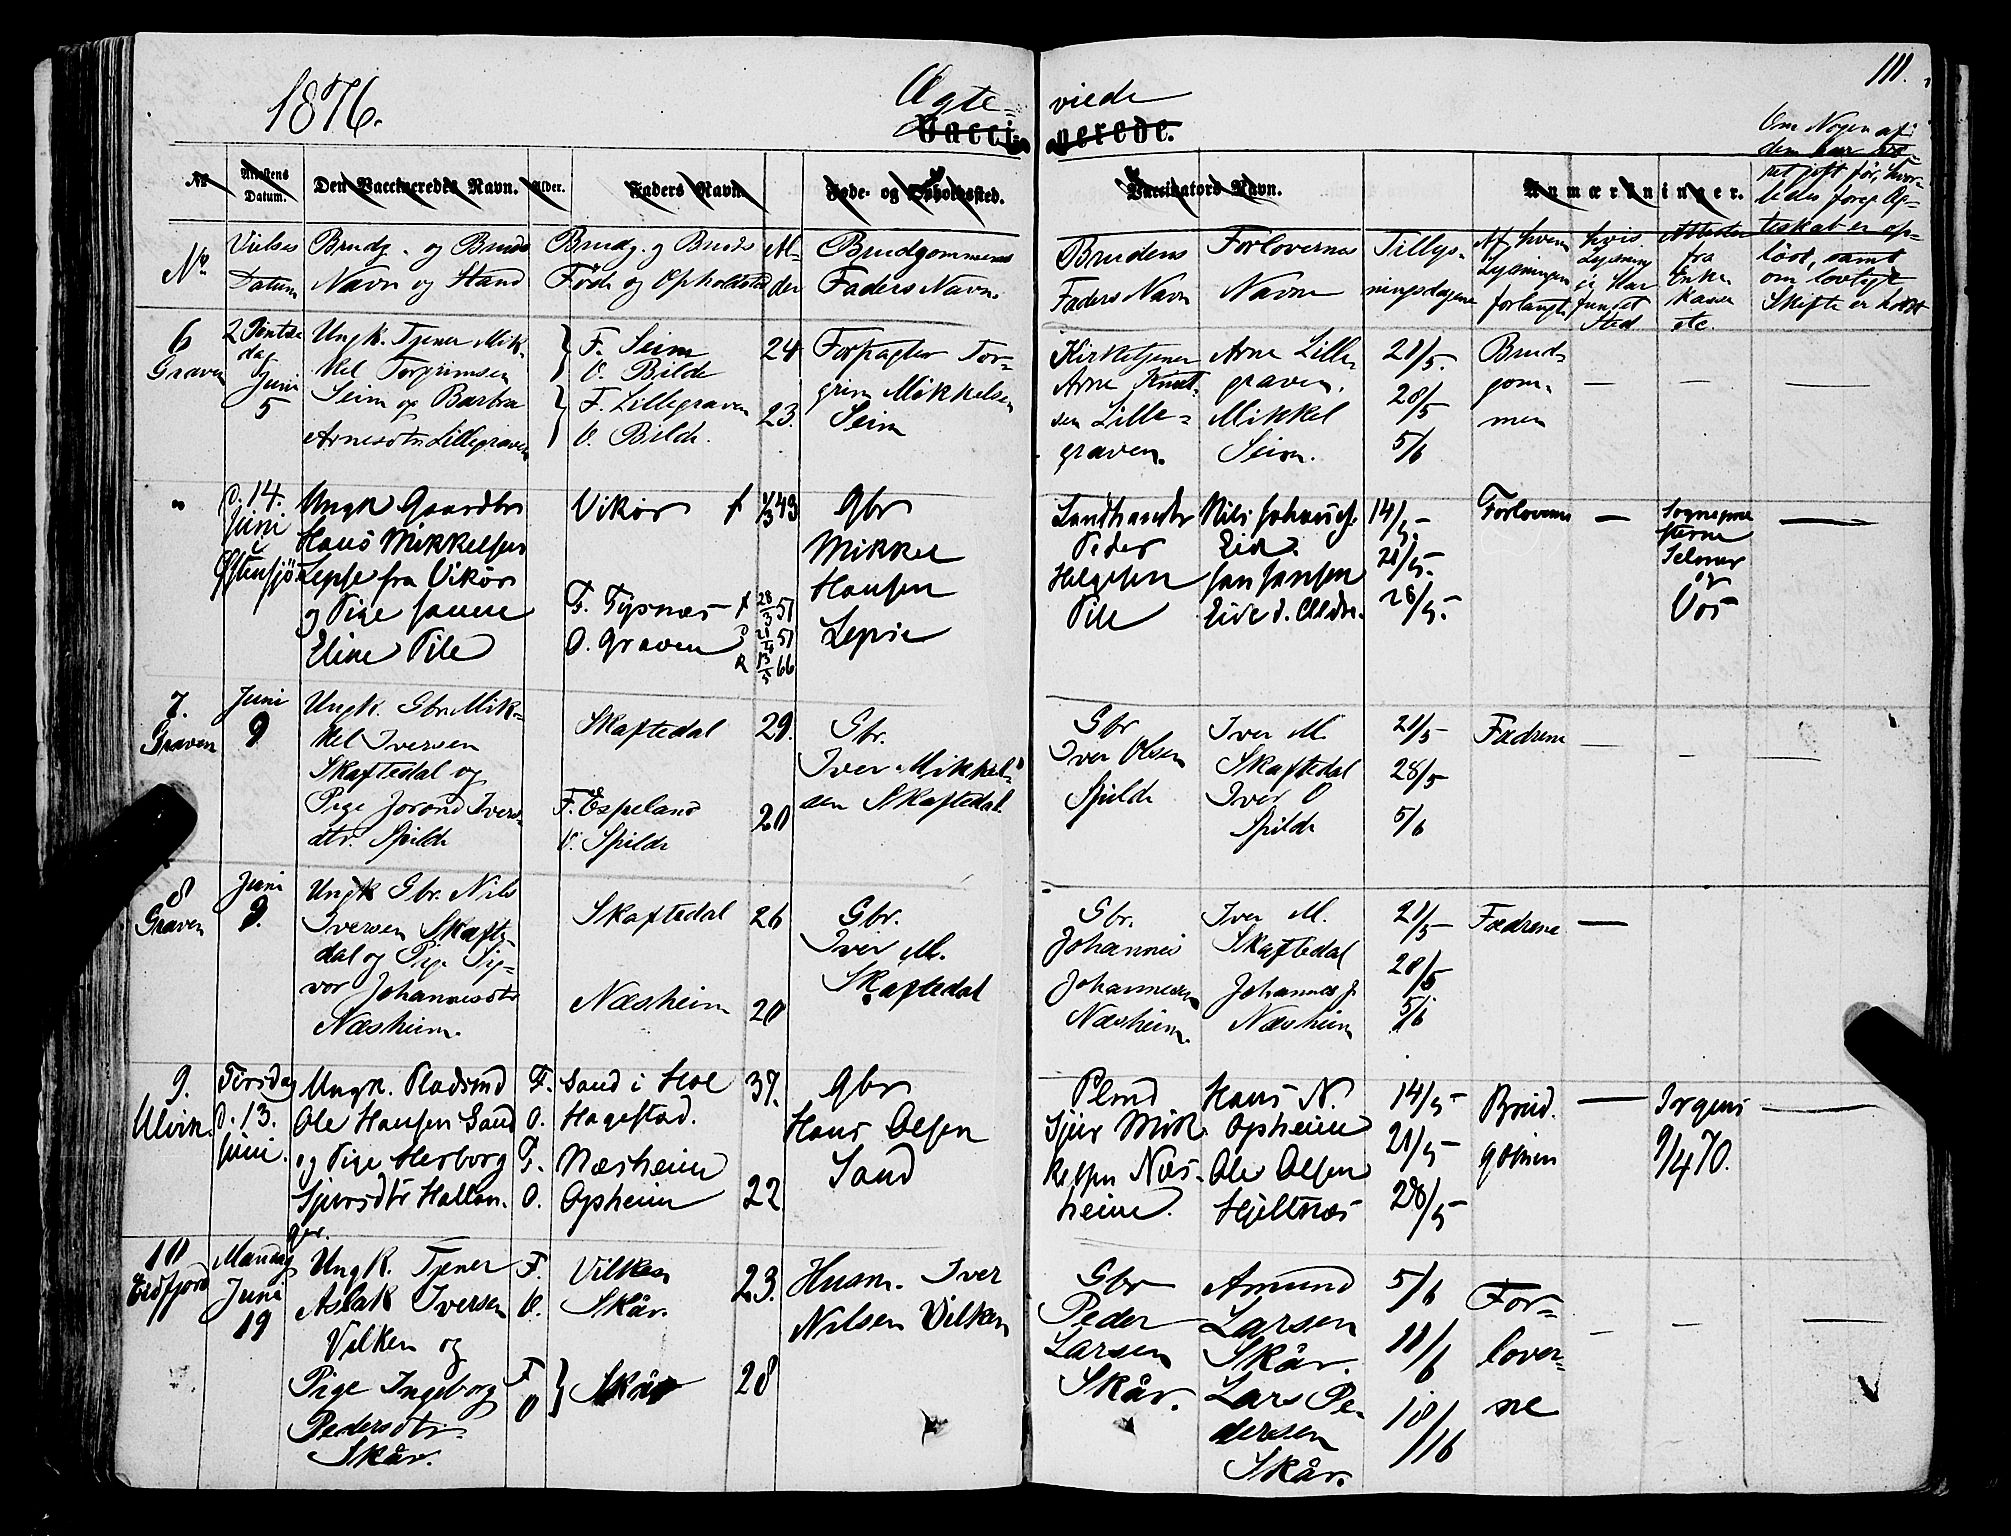 1876.
Ægte-
viede
111.
Vacci-
nerede.
Om Nogen af
dem har
været gift før, hvor-
ledes foreg. Æg-
teskab er op-
löst, samt
om lovligt
Skifte er holdt
No
Attestens Datum.
Den Vaccineredes Navn.
Alder.
Faders Navn.
Føde- og Opholdssted.
Vaccinators Navn.
Anmærkninger.
No.
Vielses Datum
Brudg. og Bruds Navn og Stand
Brudg. og Bruds Föde og Opholdsted
Al-
der
Brudgommens Faders Navn.
Brudens Faders Navn
Forlovernes Navne
Tillys-
ningsdagene
Af hvem Lysningen forlangt
hvis Lysning ei har funnet Sted
Attester fra Enke kasse etc.
6
Graven
2 Pintse
dag
Juni
5
Ungk. Tjener Mik-
kel Torgrimsen
Seim og Barbra
Arnesdtr Lillegraven
F. Seim
O. Bilde
F. Lillegraven
O. Bilde.
24
23.
Forpagter Tor-
grim Mikkelsen
Seim
Kirketjener
Arne Knut-
sen Lille-
graven.
Arne Lille
graven.
Mikkel
Seim.
21/5.
28/5
5/6
Brud
gom-
men
"
d. 14.
Juni
Østensjö
Ungk Gaardbr
Hans Mikkelsen
Lepse fra Vikör
og Pige Janne
Eline Pile
Vikör
F. Tysnæs
O. Graven
f 1/3 49
f 28/3 51
51
R 13/5 66
Gbr
Mikkel
Hansen
Lepsie
Landhandler
Peder
Helgesen
Pile
Nils Johannes.
Eide.
Jan Jansen
Eide d. Eldre.
14/5-
21/5-
28/5-
Forloverne
Sognepræ
sterne
Selmer
og
Vos
7.
Graven
Juni
9
Ungk. Gbr. Mik-
kel Iversen
Skaftedal og
Pige Jorånd Ivers-
dtr. Spilde
Skaftedal
F. Espeland
O. Spilde
29.
20
Gbr.
Iver Mikkel-
sen Skaftedal
Gbr
Iver Olsen
Spilde
Iver M
Skaftedal
Iver O
Spilde
21/5
28/5
5/6
Fædrene
8
Graven
Juni
9.
Ungk Gbr. Nils
Iversen Skafte-
dal og Pige Sy-
vor Johannesdtr
Næsheim.
Skaftedal
Næsheim
26
20
Gbr.
Iver M.
Skaftedal
Gbr.
Johannes
Johannessen
Næsheim.
Iver M.
Skaftedal
Johannes J.
Næsheim
21/5
28/5
5/6
Fædrene
9.
Ulvik.
Tirsdag
d. 13.
Juni.
Ungk. Pladsmd
Ole Hansen Sand
og Pige Herborg
Sjursdtr Hallan-
ger.
F. Sand i Hol
O. Hagestad.
F. Næsheim
O. Opheim
37.
22
Gbr
Hans Olsen
Sand
Plsmd
Sjur Mik
kelsen Næs-
heim.
Hans N.
Opheim
Ole Olsen
Hjeltnæs
14/5-
21/5-
28/5-
Brud.
gomen
Irgens
9/4 70.
10
Eidfjord
Mandag
Juni
19
Ungk. Tjener
Aslak Iversen
Vilken og
Pige Ingeborg
Pedersdtr
Skår.
F. Vilken
O. Skår.
F
O
Skår
23.
28
Husm. Iver
Nilsen Vilken
Gbr
Peder
Larsen
Skår.
Amund
Larsen
Skår.
Lars Pe-
dersen
Skår.
5/6
11/6
18/6
For-
lover-
ne